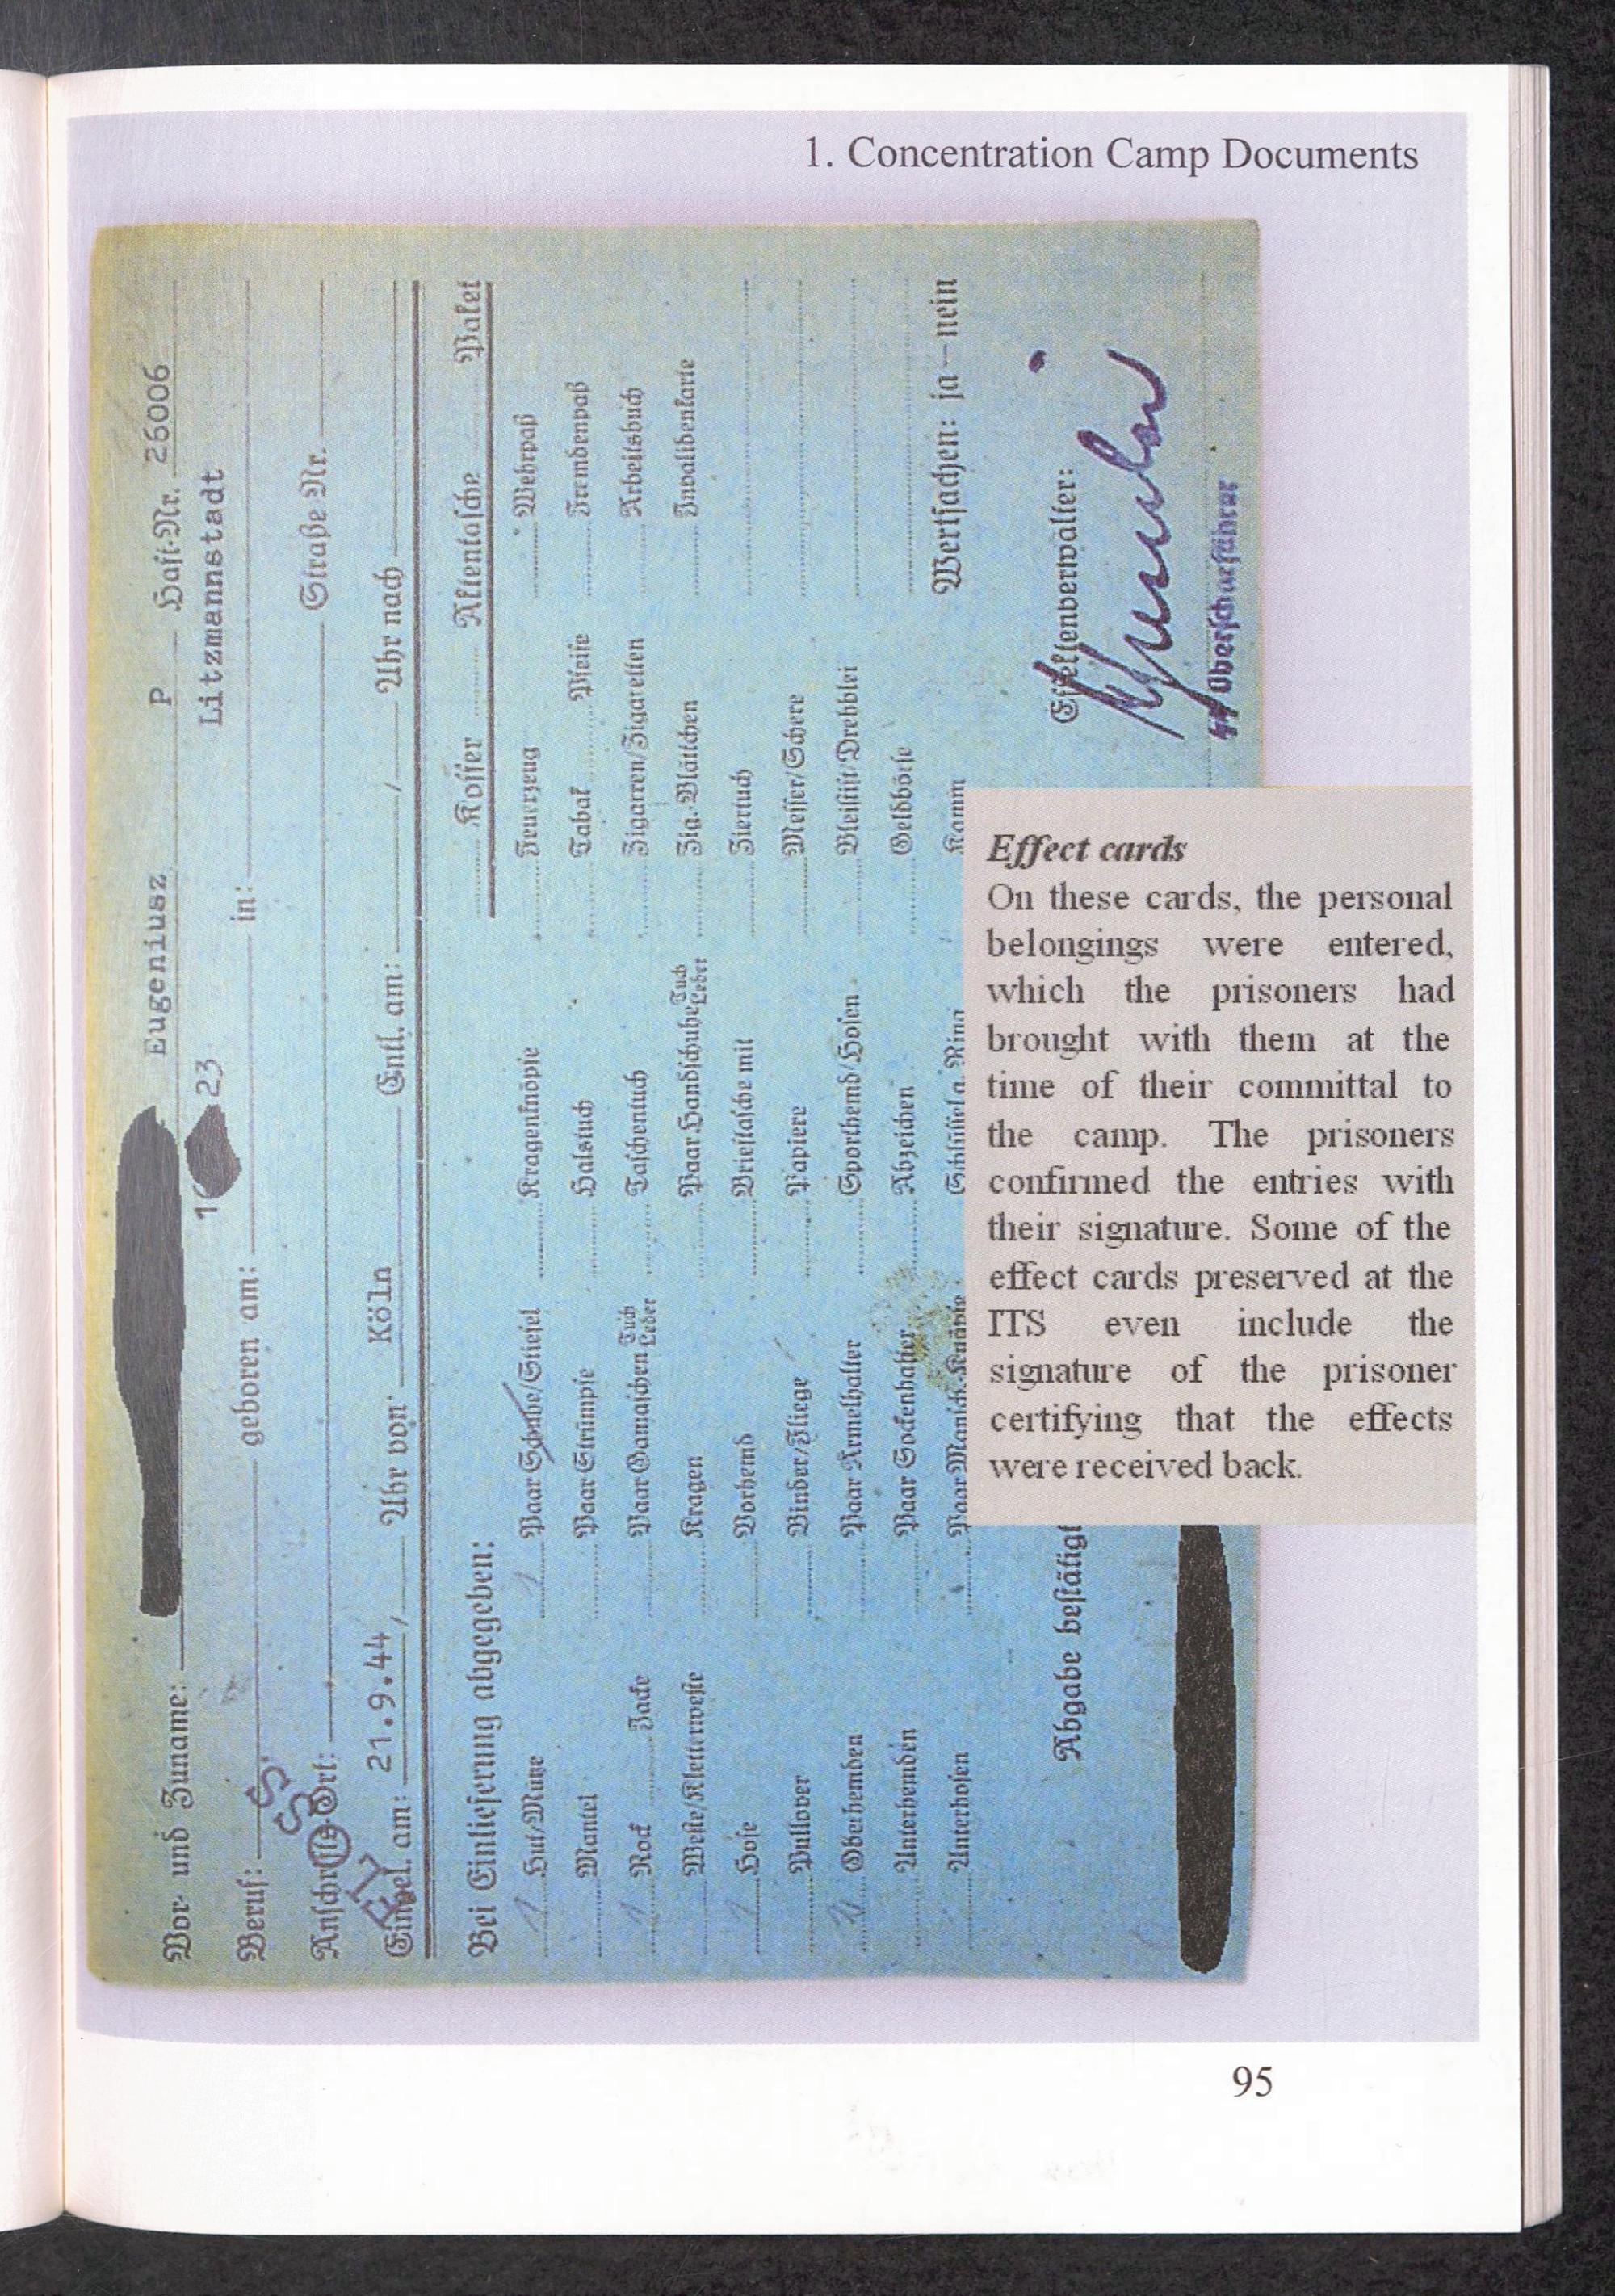 1. Concentration Camp Documents
Vor- und Zuname: Eugeniusz P Haft-Nr. 26006
23 Litzmannstadt
Beruf: geboren am: in:
Anschrifts-Ort: Straße Nr.
Eingel. am: 21.9.44, Uhr von Köln Entl. am: / Uhr nach
Bei Einlieferung abgegeben: Koffer Aktentasche Paket
1 Hut/Mütze 1 Paar Schuhe/Stiefel Kragenknöpfe Feuerzeug Wehrpaß
Mantel Paar Strümpfe Halstuch Tabak Pfeife Fremdenpaß
1 Rock Jacke Paar Gamaschen Tuch Leder Taschentuch Zigarren/Zigaretten Arbeitsbuch
Weste/Kletterweste Kragen Paar Handschuhe Tuch Leder Zig.-Blättchen Invalidenkarte
1 Hose Vorhemd Brieftasche mit Ziertuch
Pullover Binder/Fliege Papiere Messer/Schere
Oberhemden Paar Ärmelhalter Sporthemd/Hosen Bleistift/Drehblei
Unterhemden Paar Sockenhalter Abzeichen Geldbörse
Unterhosen Paar Mansch.-Knöpfe Schlüssel a. Ring Kamm Wertsachen: ja – nein
Abgabe bestätigt Effektenverwalter:
SS Oberscharführer
Effect cards
On these cards, the personal
belongings were entered,
which the prisoners had
brought with them at the
time of their committal to
the camp. The prisoners
confirmed the entries with
their signature. Some of the
effect cards preserved at the
ITS even include the
signature of the prisoner
certifying that the effects
were received back.
95